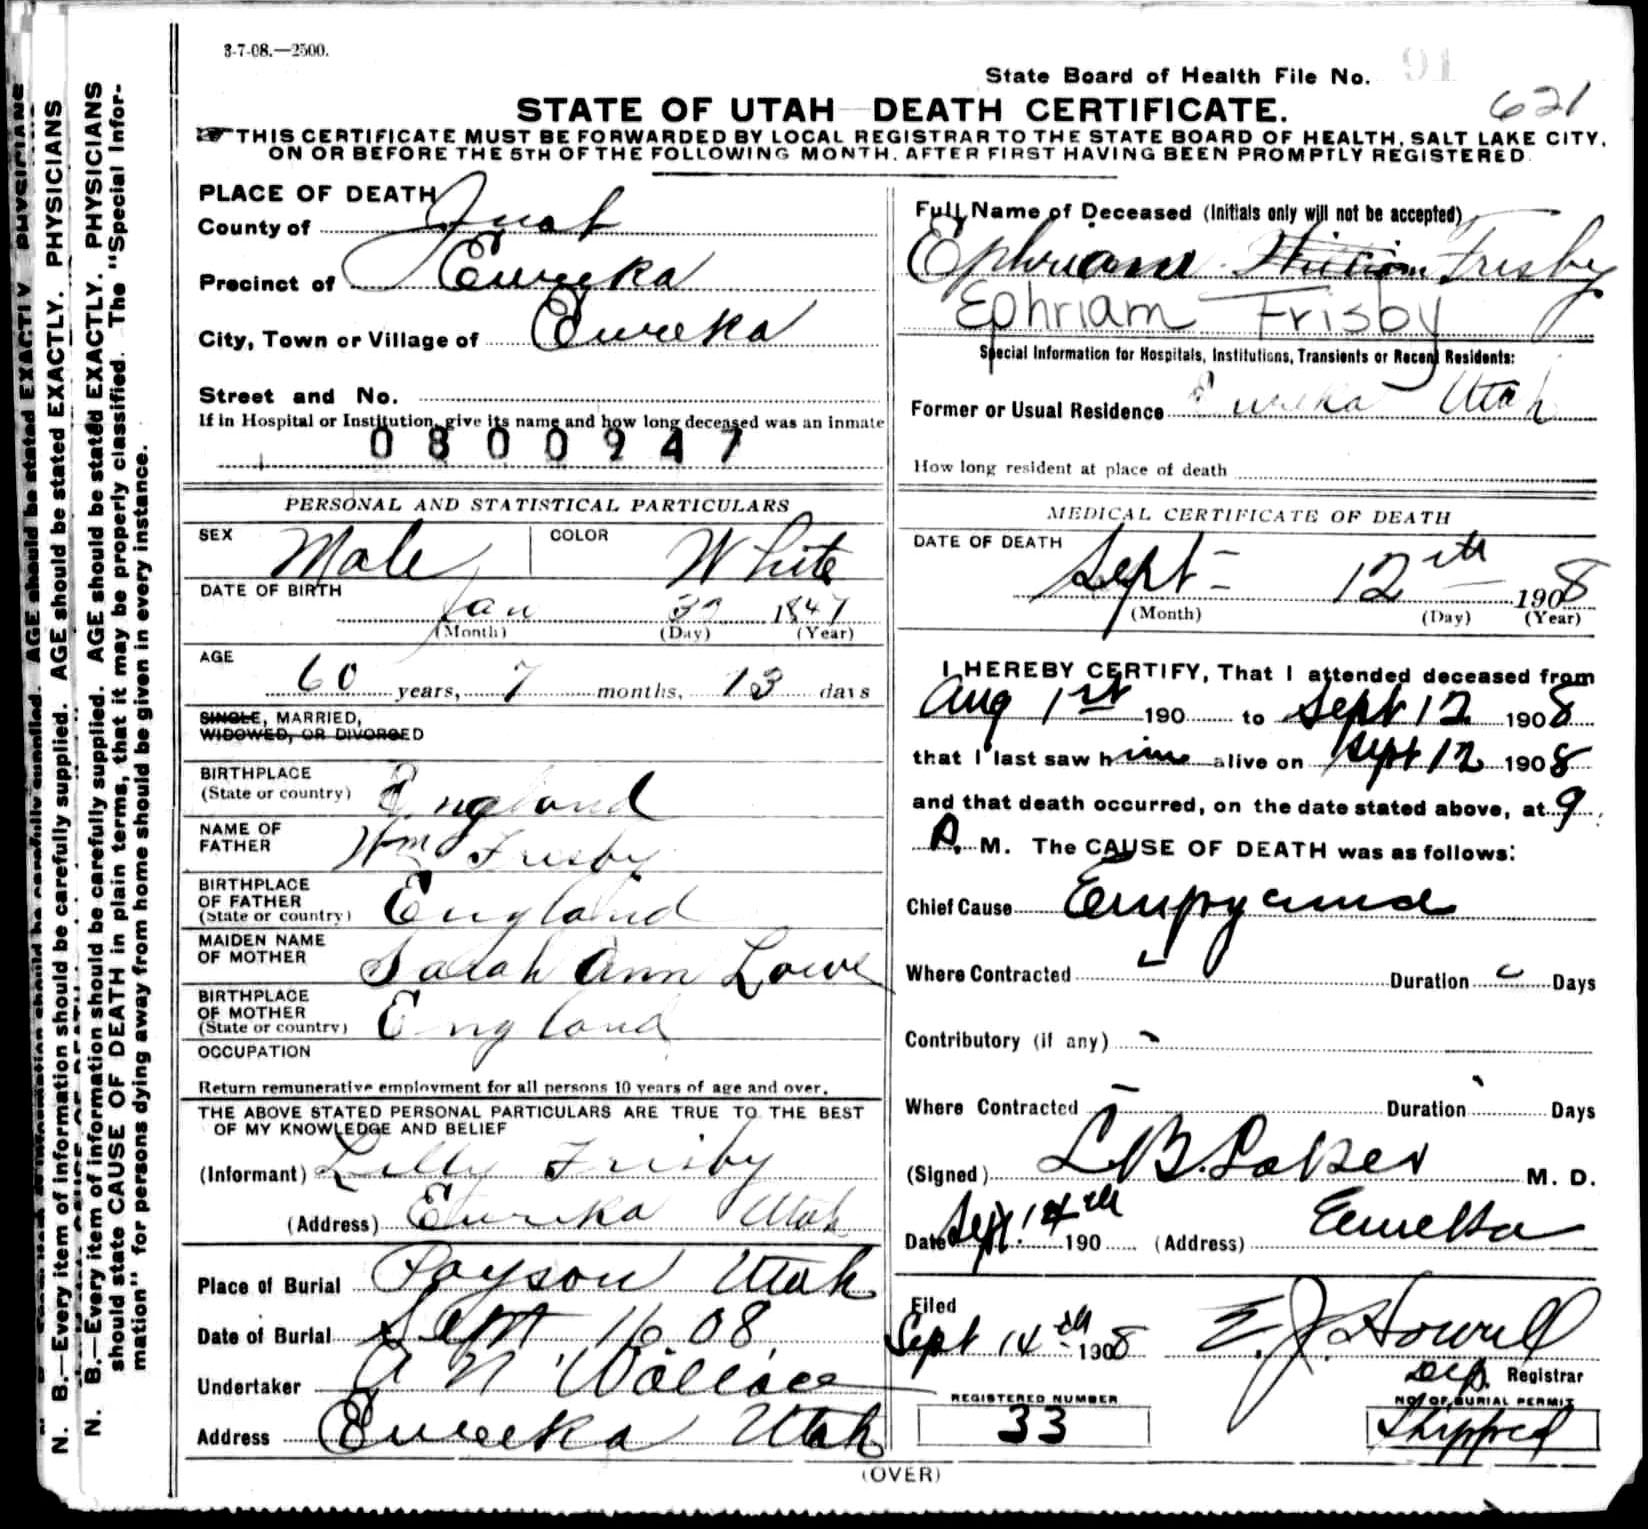 3-7-08.—2500.
State Board of Health File No. 91
621
STATE OF UTAH DEATH CERTIFICATE.
THIS CERTIFICATE MUST BE FORWARDED BY LOCAL REGISTRAR TO THE STATE BOARD OF HEALTH, SALT LAKE CITY,
ON OR BEFORE THE 5TH OF THE FOLLOWING MONTH, AFTER FIRST HAVING BEEN PROMPTLY REGISTERED.
PLACE OF DEATH
County of Juab
Precinct of Eureka
City, Town or Village of Eureka
Street and No.
If in Hospital or Institution, give its name and how long deceased was an inmate
0800947
PERSONAL AND STATISTICAL PARTICULARS
SEX Male COLOR White
DATE OF BIRTH
Jan 1847
(Month) (Day) (Year)
AGE
60 years, 7 months, 13 days
SINGLE, MARRIED,
WIDOWED, OR DIVORCED
BIRTHPLACE
(State or country) England
NAME OF
FATHER Wm Frisby
BIRTHPLACE
OF FATHER
(State or country) England
MAIDEN NAME
OF MOTHER Sarah Ann Lowe
BIRTHPLACE
OF MOTHER
(State or country) England
OCCUPATION
Return remunerative employment for all persons 10 years of age and over.
THE ABOVE STATED PERSONAL PARTICULARS ARE TRUE TO THE BEST
OF MY KNOWLEDGE AND BELIEF
(Informant) Lilly Frisby
(Address) Eureka Utah
Place of Burial Payson Utah
Date of Burial Sept 16 08
Undertaker A N Wallace
Address Eureka Utah
Full Name of Deceased (Initials only will not be accepted)
Ephriam Frisby
Ephriam Frisby
Special Information for Hospitals, Institutions, Transients or Recent Residents:
Former or Usual Residence Eureka Utah
How long resident at place of death
MEDICAL CERTIFICATE OF DEATH
DATE OF DEATH
Sept - 12th 1908
(Month) (Day) (Year)
I HEREBY CERTIFY, That I attended deceased from
Aug 1st 190 to Sept 12 1908
that I last saw him alive on Sept 12 1908
and that death occurred, on the date stated above, at 9
A. M. The CAUSE OF DEATH was as follows:
Chief Cause Empyema
Where Contracted Duration Days
Contributory (if any) -
Where Contracted - Duration Days
(Signed) M. D.
Date Sept. 14th 190 (Address) Eureka
Filed
Sept 14th 1908 E. J. Howell
Dep. Registrar
REGISTERED NUMBER
33
NO OF BURIAL PERMIT
Shipped
(OVER)
N. B.—Every item of information should be carefully supplied. AGE should be stated EXACTLY. PHYSICIANS
N. B.—Every item of information should be carefully supplied. AGE should be stated EXACTLY. PHYSICIANS
should state CAUSE OF DEATH in plain terms, that it may be properly classified. The "Special Infor-
mation" for persons dying away from home should be given in every instance.